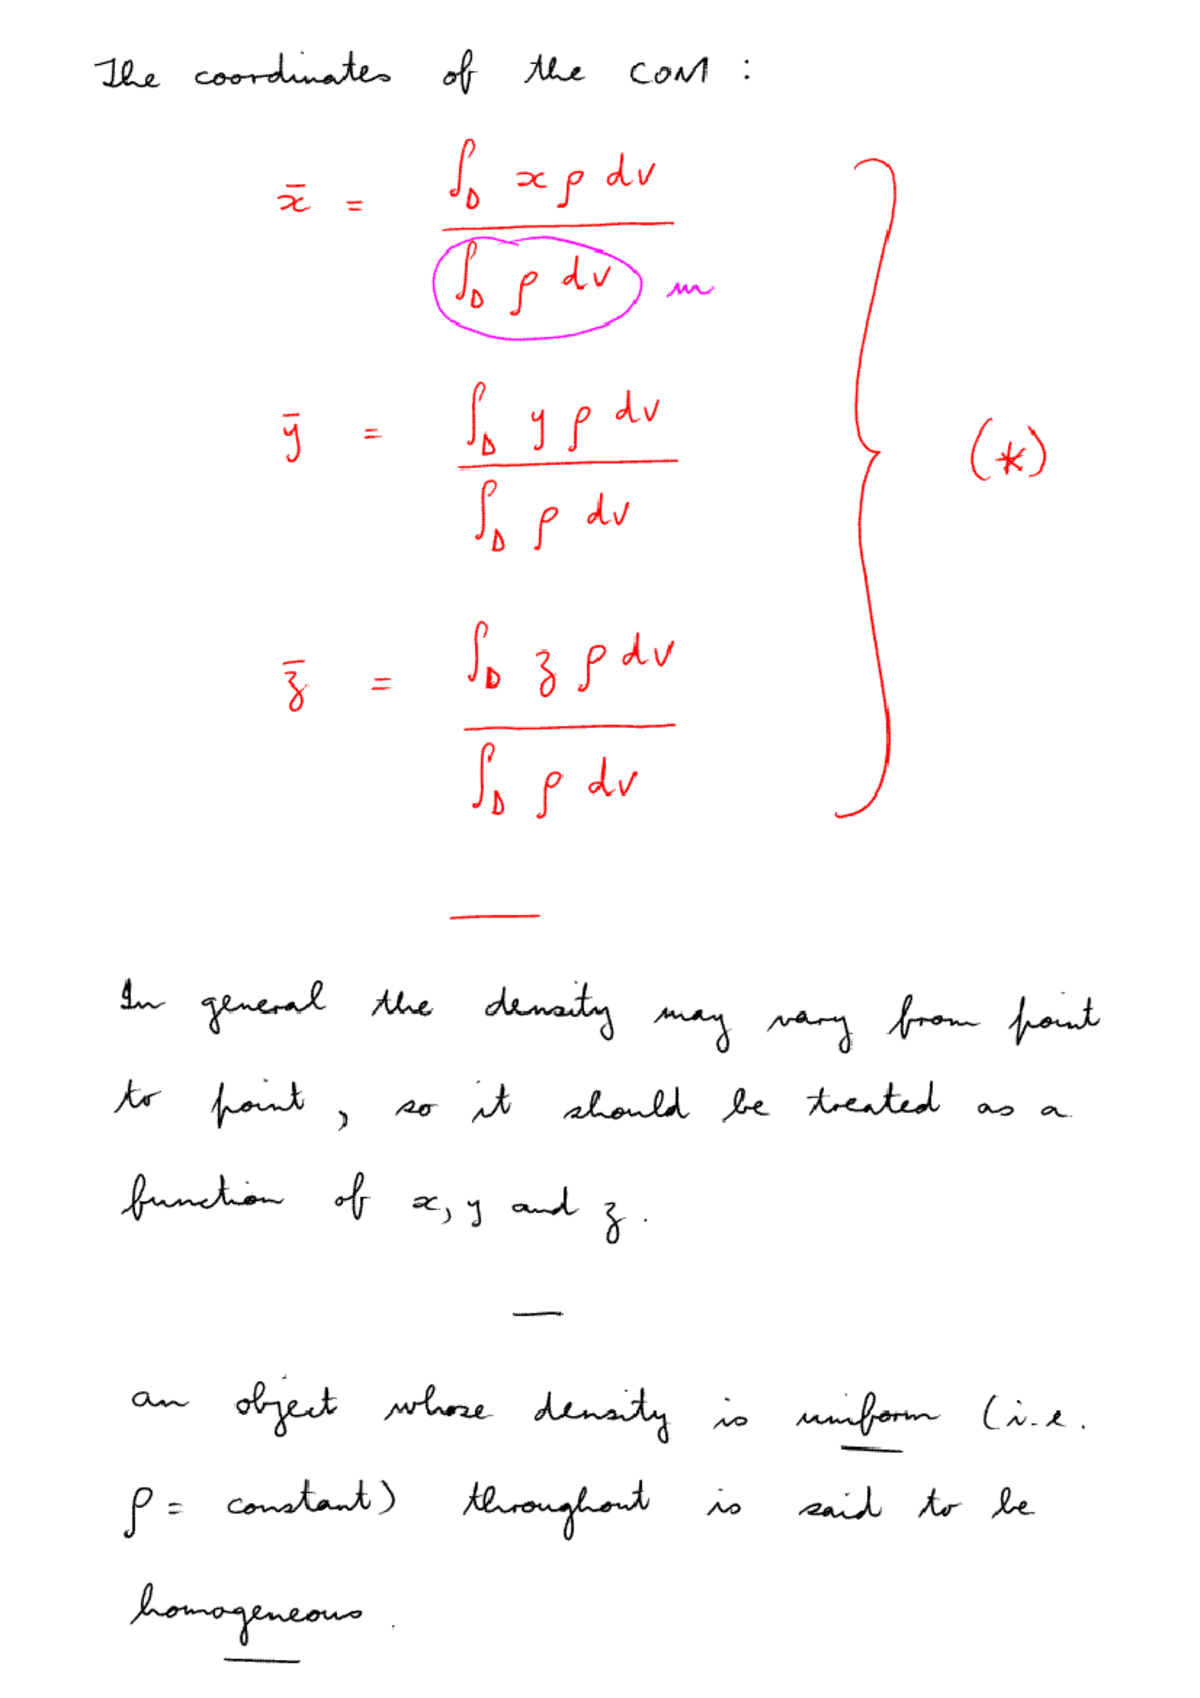 The coordinates of the COM :
x̄ = ∫_D x ρ dv / ∫_D ρ dv m
ȳ = ∫_D y ρ dv / ∫_D ρ dv (*)
z̄ = ∫_D z ρ dv / ∫_D ρ dv
In general the density may vary from point
to point, so it should be treated as a
function of x, y and z.
an object whose density is uniform (i.e.
ρ = constant) throughout is said to be
homogeneous.